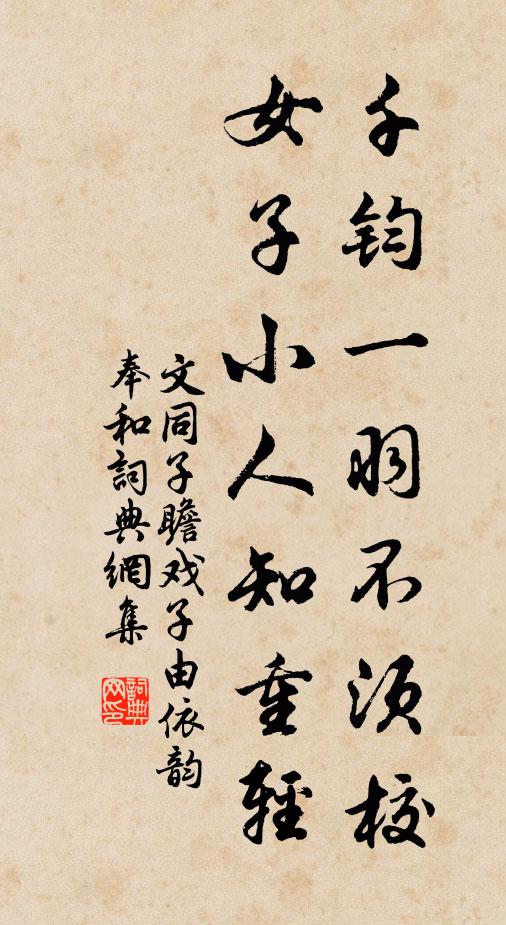 千鈞一羽不须校
女子小人知重輕
文同子瞻戏子由依韵
奉和詞典網集
詞典
网印